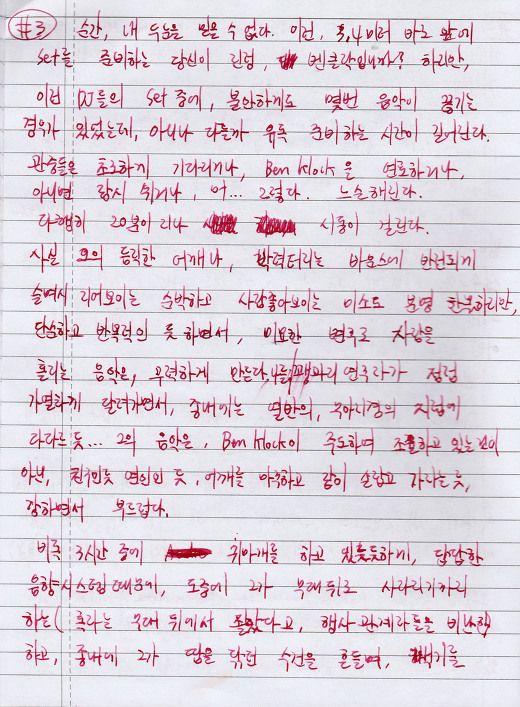 #3 순간, 내 두눈을 믿을 수 없다. 이런, 3,4미터 바로 앞에
set를 준비하는 당신이 진정, 벤클락입니까? 하지만,
이전 DJ들의 set 중에, 불안하게도 몇번 음악이 끊기는
경우가 있었는데, 아니나 다를까 유독 준비하는 시간이 길어진다.
관중들은 초조하게 기다리거나, Ben klock을 연호하거나,
아니면 잠시 쉬거나, 어... 그렇다. 느슨해진다.
다행히 20분이 지나 시동이 걸린다.
사실 그의 듬직한 어깨나, 박력터지는 바운스에 반전되게
슬며시 지어보이는 순박하고 사람좋아보이는 미소도 분명 한몫하지만,
단순하고 반복적인 듯 하면서, 미묘한 변주로 사람을
홀리는 음악은, 우력하게 만든다. 꽹과리 연주자가 점점
가열차게 달려가면서, 종내에는 열반의, 무아지경의 지점에
다다르듯... 그의 음악은, Ben klock이 주도하며 조율하고 있는것이
아닌, 친구인듯 연인인 듯, 어깨를 마주하고 같이 손잡고 가자는듯,
강하면서 부드럽다.
비록 3시간 중에 쥐어짜기를 하고 있는듯하게, 답답한
음향시스템 때문에, 도중에 그가 무대 뒤로 사라지기까지
하는( 혹자는 무대 뒤에서 졸았다고, 행사 관계자들을 비난
하고, 종내에 그가 땀을 닦던 수건을 흔들며, 백기를